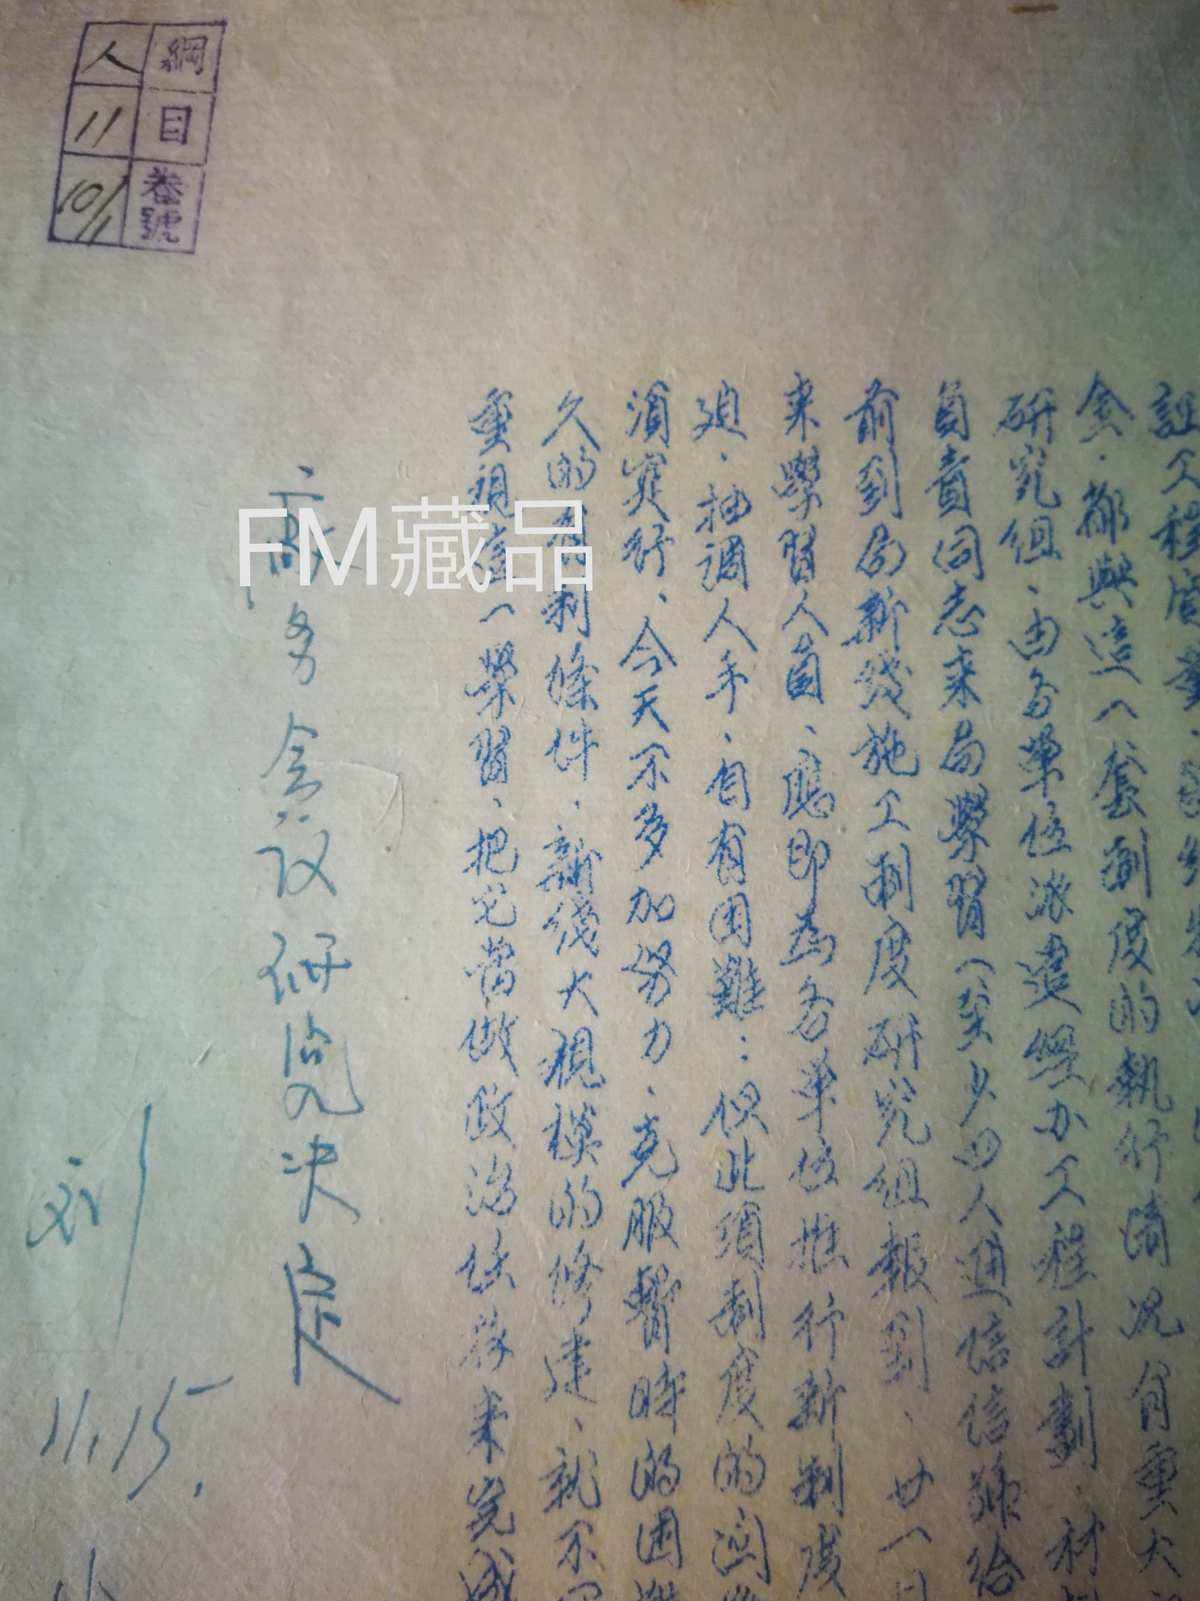 証工程質量
金、都與這一套制度的執行情况有重大
研究組、由各單位派遣經办工程計劃、材
負責同志来局學習(至少四人通信信號給
前到局新綫施工制度研究組報到、廿一日
来學習人員、應即為各單位推行新制度
迫、抽調人手、自有困難:但此項制度的
濱实行、今天不多加努力、克服暫時的困難
久的有利條件、新綫大規模的修建、就不
重視這一學習、把它當做政治任務来完成
务会议研究决定
刘
11.15.
綱目卷號
人 11 10/11
FM藏品